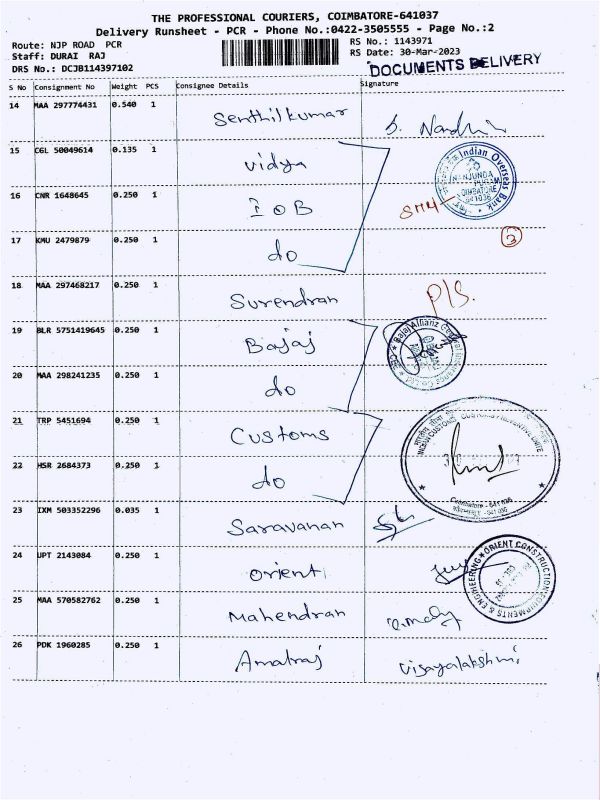 THE PROFESSIONAL COURIERS, COIMBATORE-641037
Delivery Runsheet - PCR - Phone No.:0422-3505555 - Page No.:2
Route: NJP ROAD PCR
Staff: DURAI RAJ
DRS No.: DCJB114397102
RS No.: 1143971
RS Date: 30-Mar-2023
DOCUMENTS DELIVERY
S No Consignment No Weight PCS Consignee Details Signature
14 MAA 297774431 0.540 1 Senthilkumar
15 CGL 50049614 0.135 1 Vidya
Indian Overseas Bank
NANJUNDA PURAM
COIMBATORE
641036
16 CNR 1648645 0.250 1 IOB
17 KMU 2479879 0.250 1 do
3
18 MAA 297468217 0.250 1 Surendran P/S.
19 BLR 5751419645 0.250 1 Bajaj
Bajaj Allianz General Insurance Co. Ltd.
20 MAA 298241235 0.250 1 do
21 TRP 5451694 0.250 1 Customs
22 HSR 2684373 0.250 1 do
Coimbatore - 641
23 IXM 503352296 0.035 1 Saravanan
24 UPT 2143084 0.250 1 Orient
ORIENT CONSTRUCTION EQUIPMENTS & ENGINEERING
25 MAA 570582762 0.250 1 Mahendran
26 PDK 1960285 0.250 1 Amalraj Vijayalakshmi